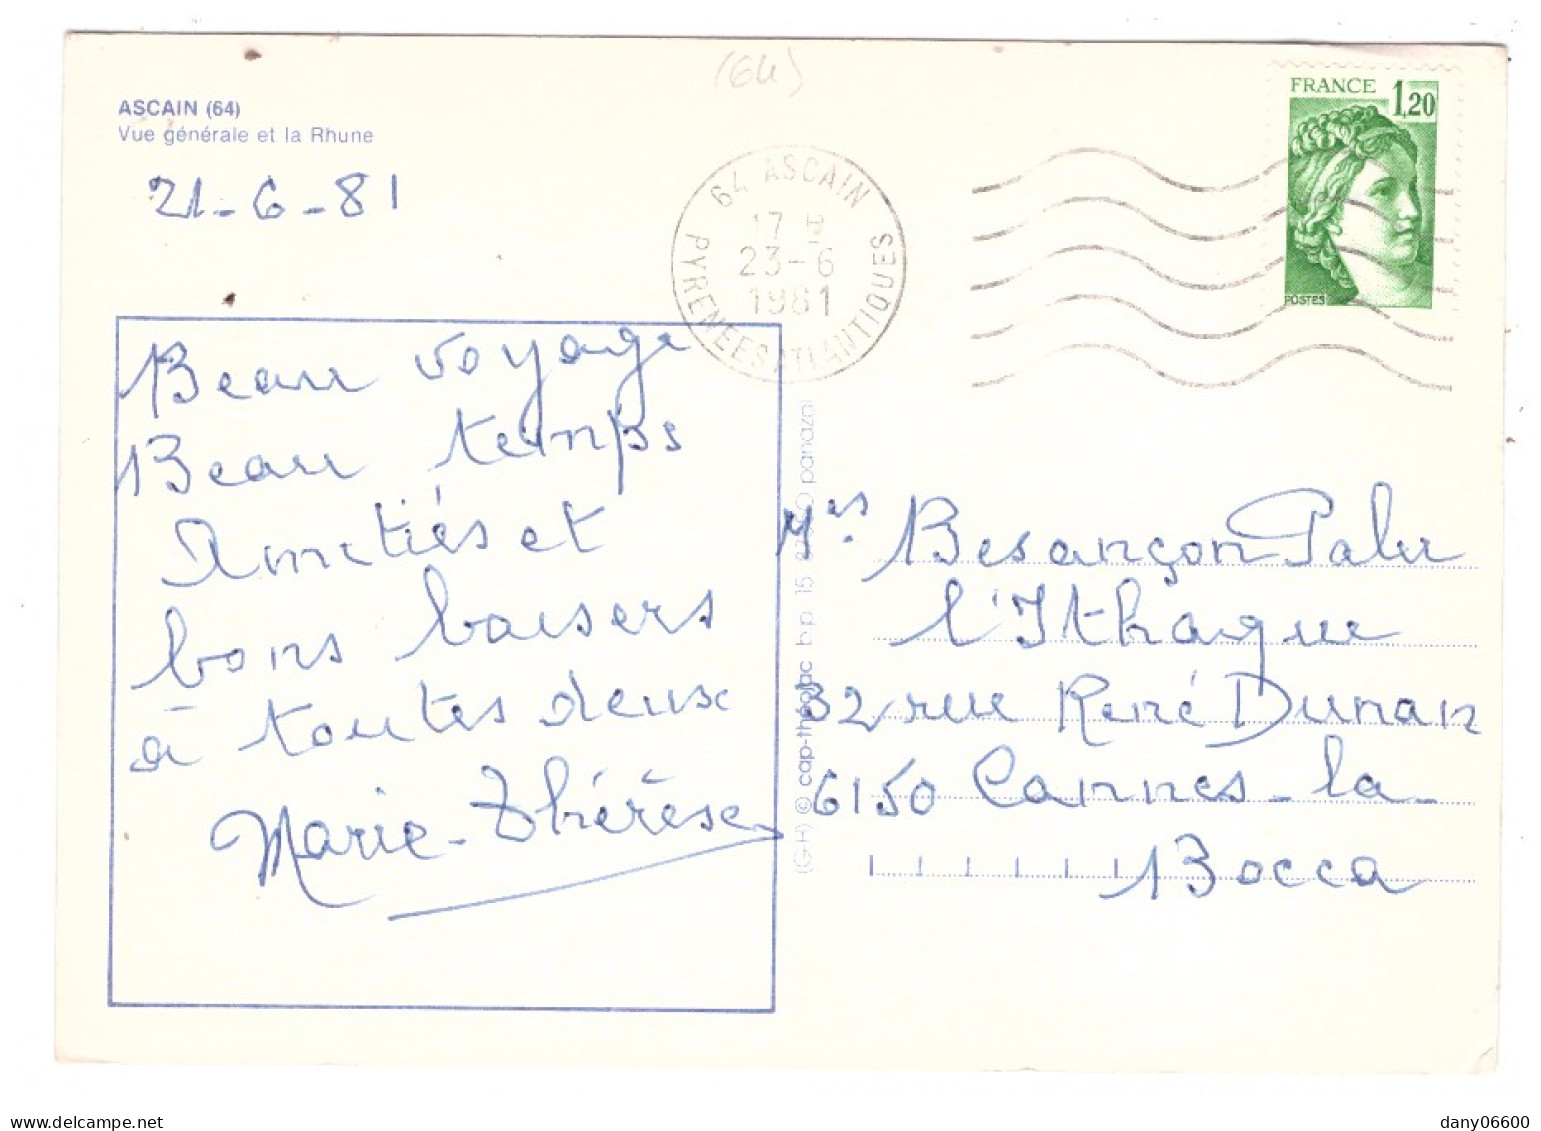 (64)
ASCAIN (64)
Vue générale et la Rhune
21-6-81
64 ASCAIN
17 H
23-6
1981
PYRENEES ATLANTIQUES
FRANCE 1,20
POSTES
Beau voyage
Beau temps
Amitiés et
bons baisers
à toutes deux
Marie-Thérèse
(G-H) © cap-théojac b.p. 15 panazol
Mes Besançon Palu
l'Ithaque
32 rue René Dunan
6150 Cannes-la-
Bocca
dany06600